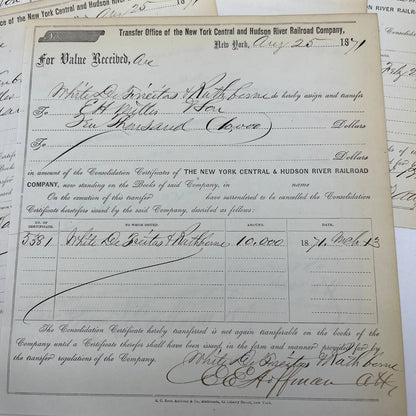 Transfer Office of the New York Central and Hudson River Railroad Company,
New York, Aug 25 1871
For Value Received, We
White De Freitas & Rathborne do hereby assign and transfer
To E H Millis & Son
Ten Thousand (10,000) Dollars
To Dollars
in amount of the Consolidation Certificates of THE NEW YORK CENTRAL & HUDSON RIVER RAILROAD
COMPANY, now standing on the Books of said Company, in name
On the execution of this transfer have surrendered to be cancelled the Consolidation
Certificate heretofore issued by the said Company, described as follows:
NO. OF CERTIFICATE. TO WHOM ISSUED. AMOUNT. DATE.
5381 White De Freitas & Rathborne 10,000 1871, Mch 13
The Consolidation Certificate hereby transferred is not again transferable on the books of the
Company until a Certificate therefor shall have been issued, in the form and manner provided for by
the transfer regulations of the Company.
White De Freitas & Rathborne
E E Hoffman Atty
of the New York Central and Hudson River Railroad Company,
Aug 25